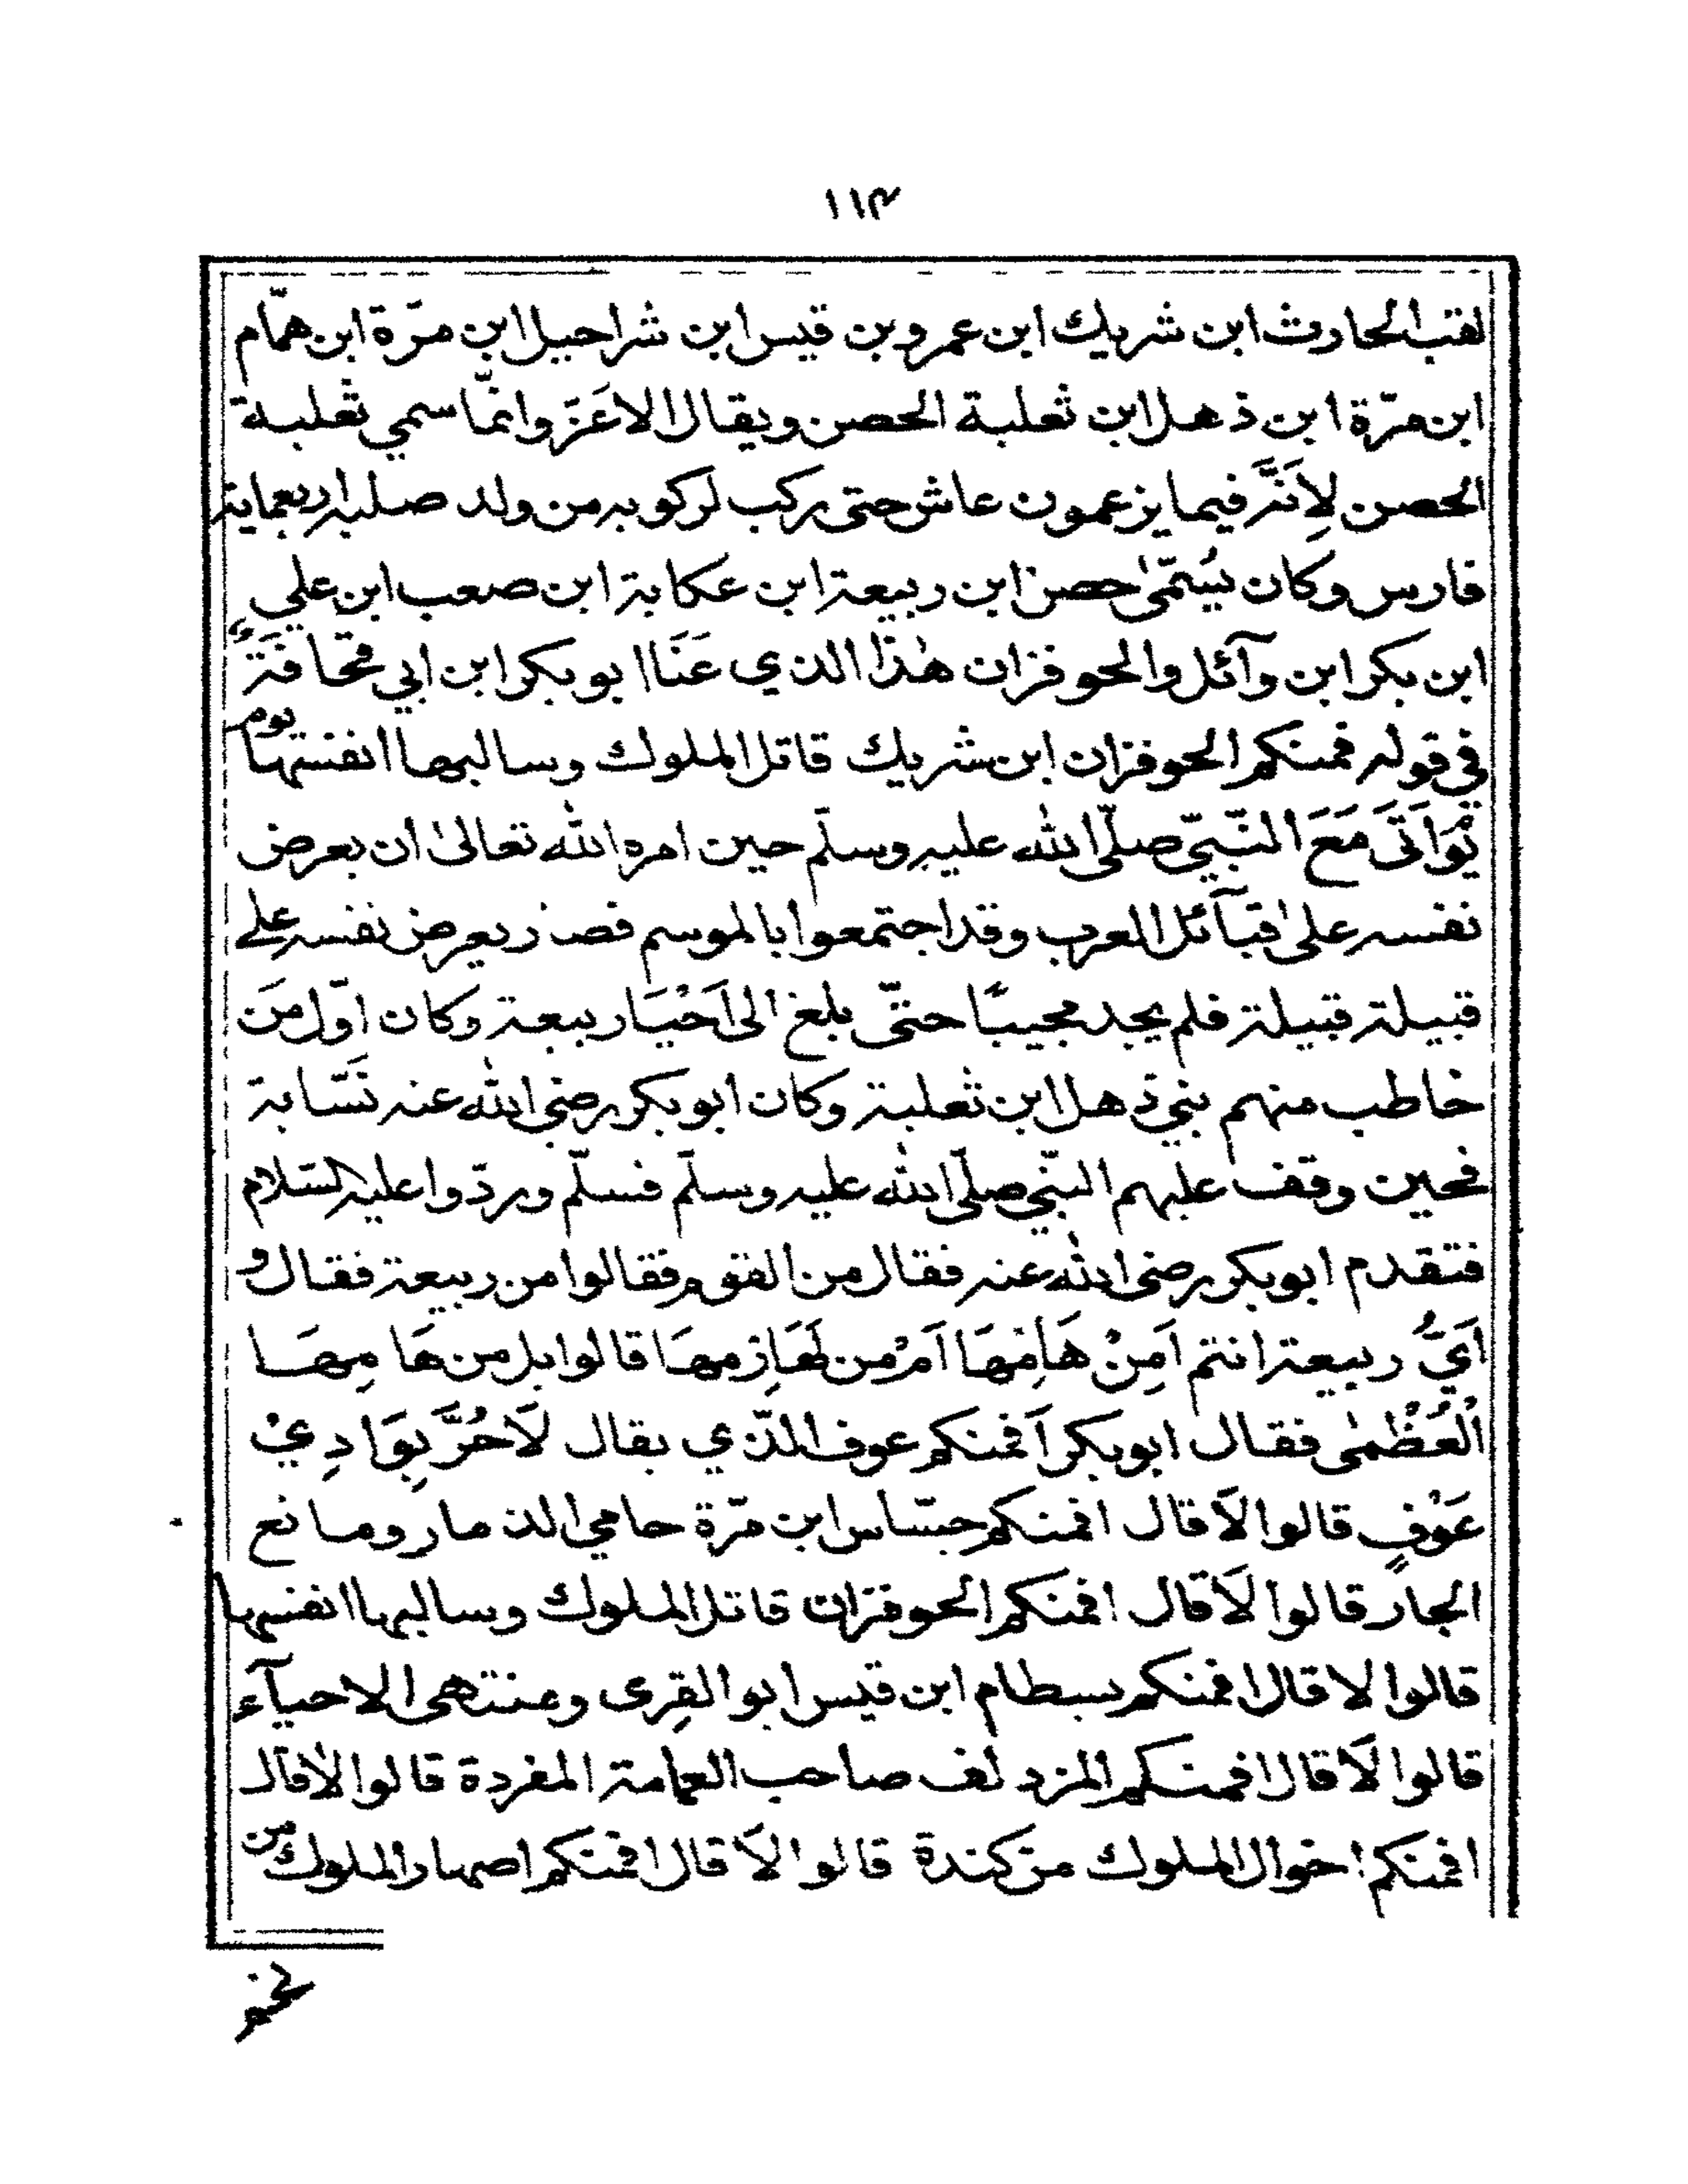 ١١٣
لقب الحارث ابن شريك ابن عمرو بن قيس ابن شراحيل ابن مرّة ابن همّام
ابن مرّة ابن ذهل ابن ثعلبة الحصن ويقال الاعَزّ وانمّا سمي ثعلبة
الحصن لِاَنَّه فيما يزعمون عاش حتى ركب لركوبه من ولد صلبه اربعماية
فارس وكان يُسَمّىٰ حصن ابن ربيعة ابن عكابة ابن صعب ابن علي
ابن بكر ابن وآئل والحوفزان هٰذا الذي عَنَا ابو بكر ابن ابي قحافَةَ
في قوله فمنكم الحوفزان ابن شريك قاتل الملوك وسالبها انفسها يوم
يُوَاَتَى مَعَ النّبيّ صلّى الله عليه وسلّم حين امره الله تعالىٰ ان يعرض
نفسه علىٰ قبآئل العرب وقد اجتمعوا بالموسم فصار يعرض نفسه على
قبيلة قبيلة فلم يجد مجيبًا حتىّ بلغ الى اَحْيَا ربيعة وكان اوّل مَن
خاطب منهم بني ذهل ابن ثعلبة وكان ابو بكر رضي الله عنه نَسَّابة
فحين وقف عليهم النّبي صلّى الله عليه وسلّم فسلّم وردّوا عليه السّلام
فتقدم ابو بكر رضي الله عنه فقال من القوم فقالوا من ربيعة فقال و
اَيُّ ربيعة انتم اَمِنْ هَامِهَا اَمْ من لَهَازِمهَا قالوا بل من هَا مِهَا
اْلعُظْمٰى فقال ابو بكر اَفمنكم عوف الذّي يقال لَاحُرَّ بِوَادِيْ
عَوْفٍ قالوا لَا قال افمنكم جسّاس ابن مرّة حامي الذمار ومانع
الجار قالوا لَا قال افمنكم الحوفزان قاتل الملوك وسالبها انفسها
قالوا لا قال افمنكم بسطام ابن قيس ابو القِرى ومنتهى الاحيآء
قالوا لَا قال افمنكم المزدلف صاحب العمامة المفردة قالوا لا قال
افمنكم اخوال الملوك من كندة قالوا لَا قال افمنكم اصهار الملوك من
لخم